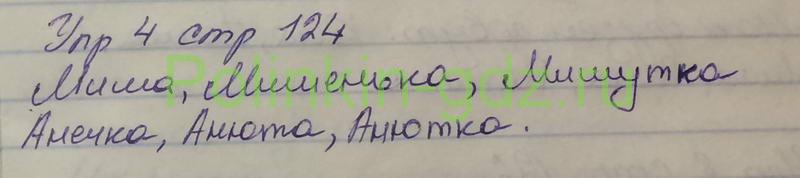 Упр 4 стр 124
Миша, Мишенька, Мишутка
Анечка, Анюта, Анютка.
Polinkin-gdz.ru